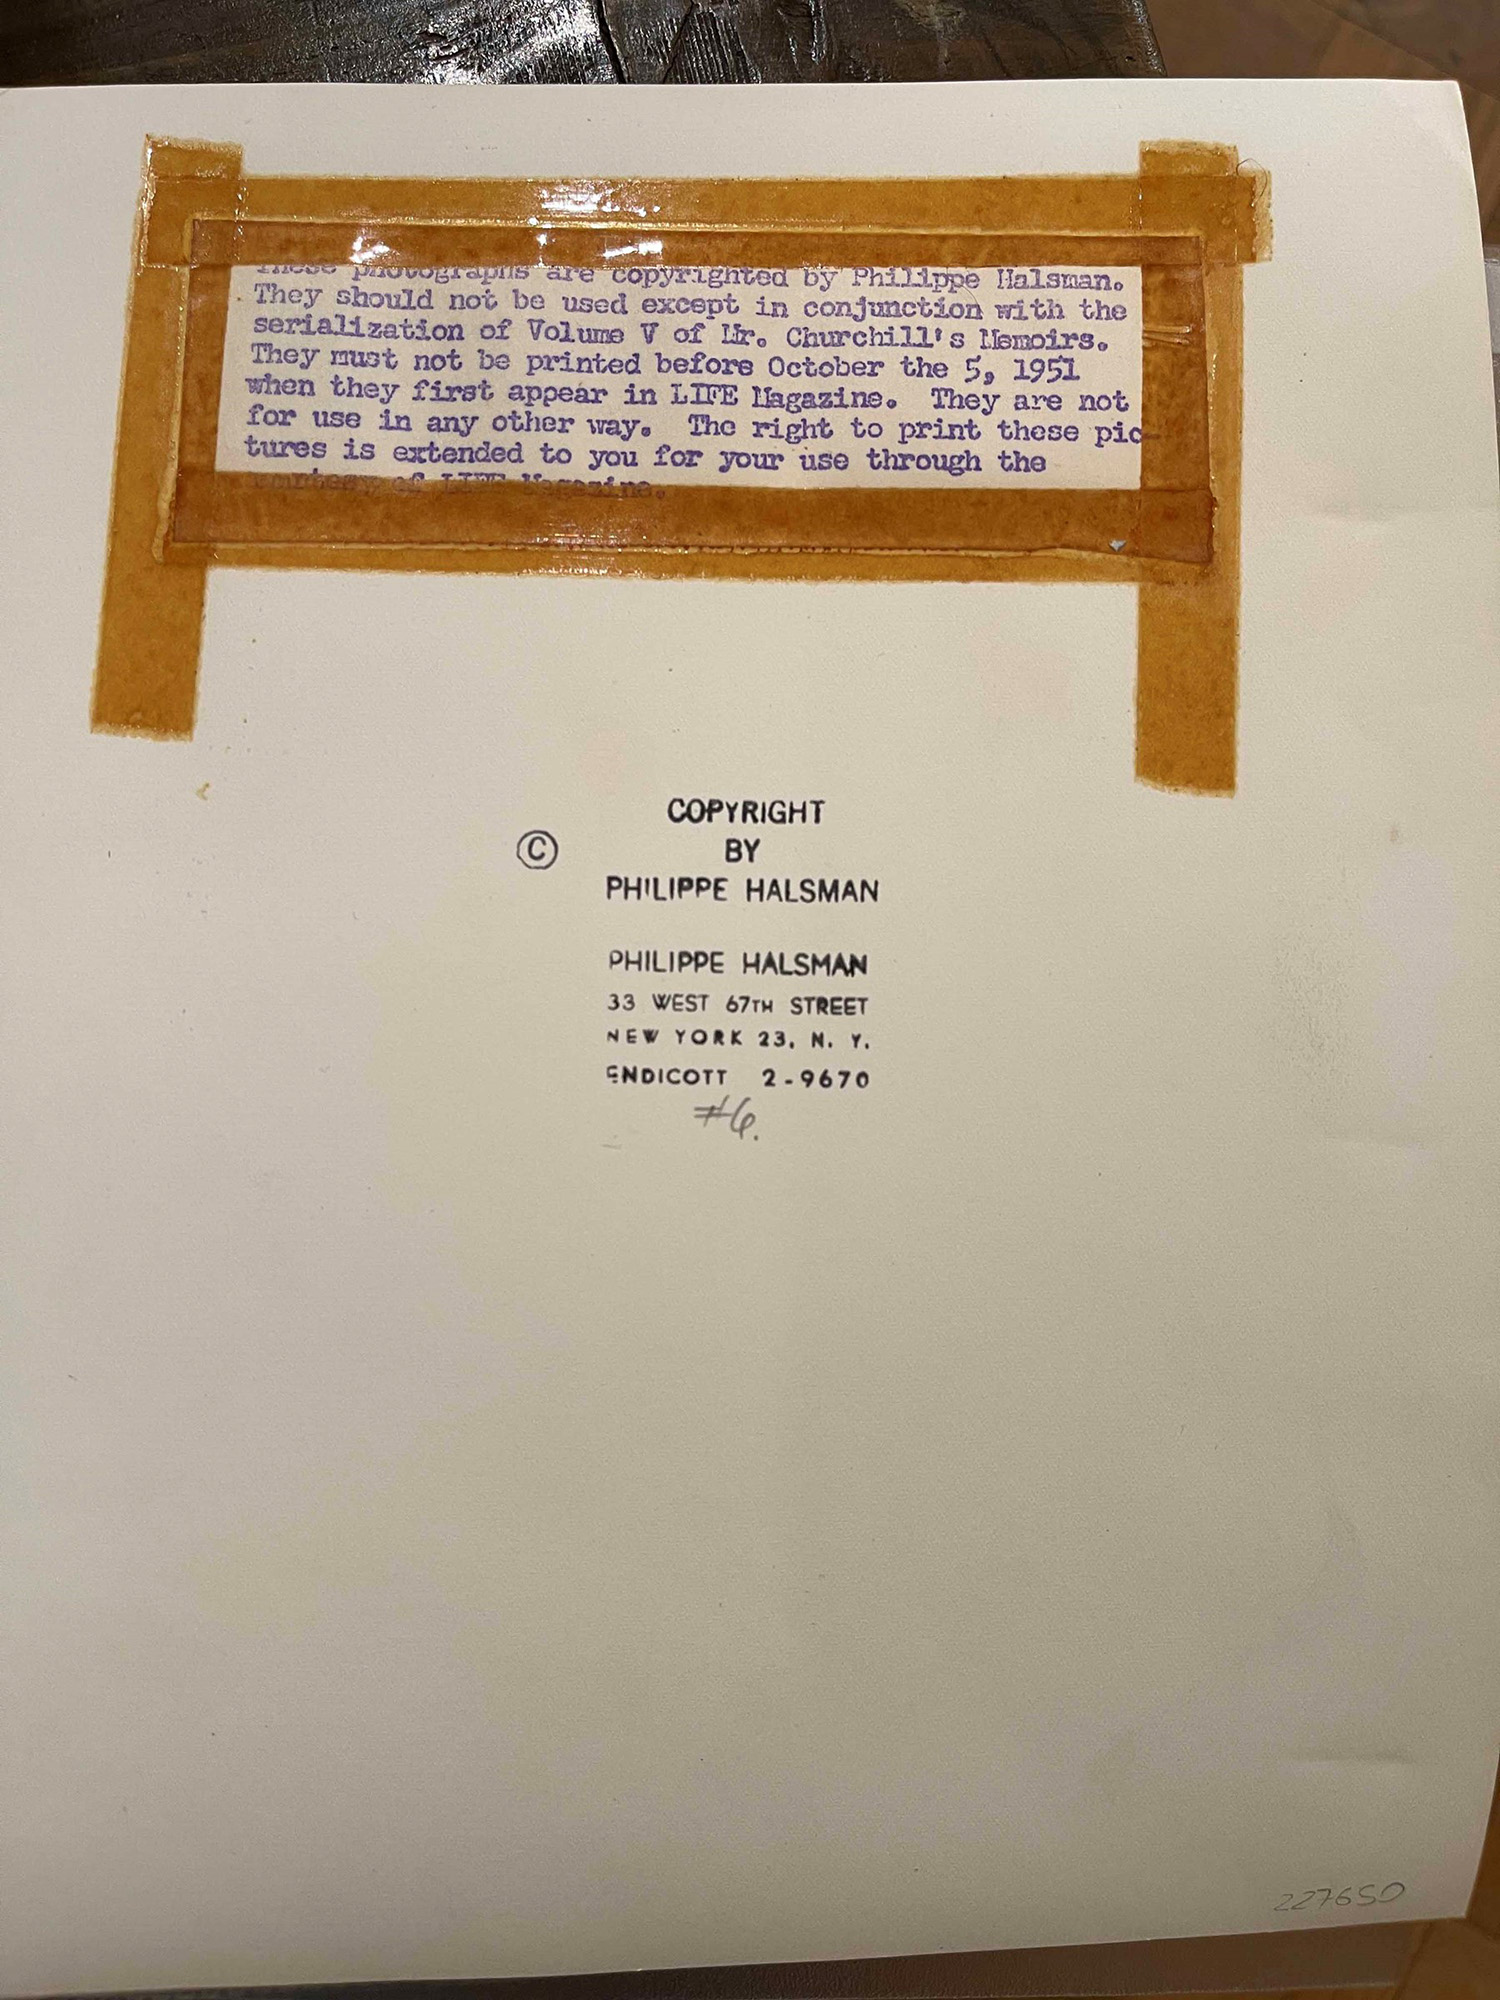 These photographs are copyrighted by Philippe Halsman.
They should not be used except in conjunction with the
serialization of Volume V of Mr. Churchill's Memoirs.
They must not be printed before October the 5, 1951
when they first appear in LIFE Magazine.  They are not
for use in any other way.  The right to print these pic-
tures is extended to you for your use through the
courtesy of LIFE Magazine.
COPYRIGHT
© BY
PHILIPPE HALSMAN
PHILIPPE HALSMAN
33 WEST 67TH STREET
NEW YORK 23, N. Y.
ENDICOTT 2-9670
#6.
227650